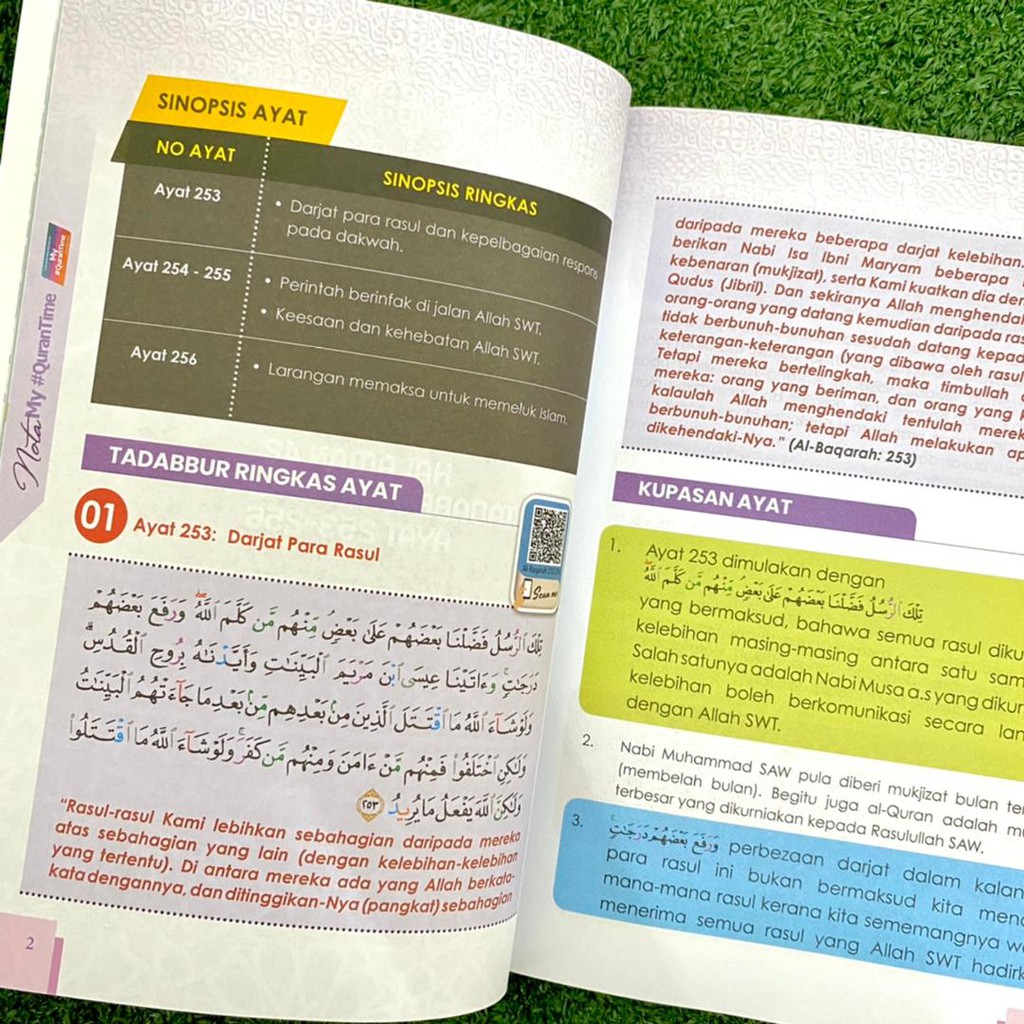 SINOPSIS AYAT
NO AYAT
SINOPSIS RINGKAS
Ayat 253
• Darjat para rasul dan kepelbagaian respons
pada dakwah.
Ayat 254 - 255
• Perintah berinfak di jalan Allah SWT.
• Keesaan dan kehebatan Allah SWT.
Ayat 256
• Larangan memaksa untuk memeluk Islam.
My #QuranTime
Nota My #QuranTime
TADABBUR RINGKAS AYAT
01 Ayat 253: Darjat Para Rasul
Scan me
تِلْكَ ٱلرُّسُلُ فَضَّلْنَا بَعْضَهُمْ عَلَىٰ بَعْضٍ مِّنْهُم مَّن كَلَّمَ ٱللَّهُ وَرَفَعَ بَعْضَهُمْ
دَرَجَٰتٍ وَءَاتَيْنَا عِيسَى ٱبْنَ مَرْيَمَ ٱلْبَيِّنَٰتِ وَأَيَّدْنَٰهُ بِرُوحِ ٱلْقُدُسِ
وَلَوْ شَآءَ ٱللَّهُ مَا ٱقْتَتَلَ ٱلَّذِينَ مِنۢ بَعْدِهِم مِّنۢ بَعْدِ مَا جَآءَتْهُمُ ٱلْبَيِّنَٰتُ
وَلَٰكِنِ ٱخْتَلَفُوا۟ فَمِنْهُم مَّنْ ءَامَنَ وَمِنْهُم مَّن كَفَرَ وَلَوْ شَآءَ ٱللَّهُ مَا ٱقْتَتَلُوا۟
وَلَٰكِنَّ ٱللَّهَ يَفْعَلُ مَا يُرِيدُ ٢٥٣
"Rasul-rasul Kami lebihkan sebahagian daripada mereka
atas sebahagian yang lain (dengan kelebihan-kelebihan
yang tertentu). Di antara mereka ada yang Allah berkata-
kata dengannya, dan ditinggikan-Nya (pangkat) sebahagian
2
daripada mereka beberapa darjat kelebihan.
berikan Nabi Isa Ibni Maryam beberapa
kebenaran (mukjizat), serta Kami kuatkan dia
Qudus (Jibril). Dan sekiranya Allah
orang-orang yang datang kemudian daripada
tidak berbunuh-bunuhan sesudah datang
keterangan-keterangan (yang dibawa oleh
Tetapi mereka bertelingkah, maka timbullah
mereka: orang yang beriman, dan orang yang
kalaulah Allah menghendaki tentulah
berbunuh-bunuhan; tetapi Allah melakukan
dikehendaki-Nya." (Al-Baqarah: 253)
KUPASAN AYAT
1. Ayat 253 dimulakan dengan
تِلْكَ ٱلرُّسُلُ فَضَّلْنَا بَعْضَهُمْ عَلَىٰ بَعْضٍ مِّنْهُم مَّن كَلَّمَ ٱللَّهُ
yang bermaksud, bahawa semua rasul
kelebihan masing-masing antara satu
Salah satunya adalah Nabi Musa a.s yang
kelebihan boleh berkomunikasi secara
dengan Allah SWT.
2. Nabi Muhammad SAW pula diberi mukjizat bulan
(membelah bulan). Begitu juga al-Quran adalah
terbesar yang dikurniakan kepada Rasulullah SAW.
3. وَرَفَعَ بَعْضَهُمْ دَرَجَٰتٍ perbezaan darjat dalam
para rasul ini bukan bermaksud kita
mana-mana rasul kerana kita sememangnya
menerima semua rasul yang Allah SWT